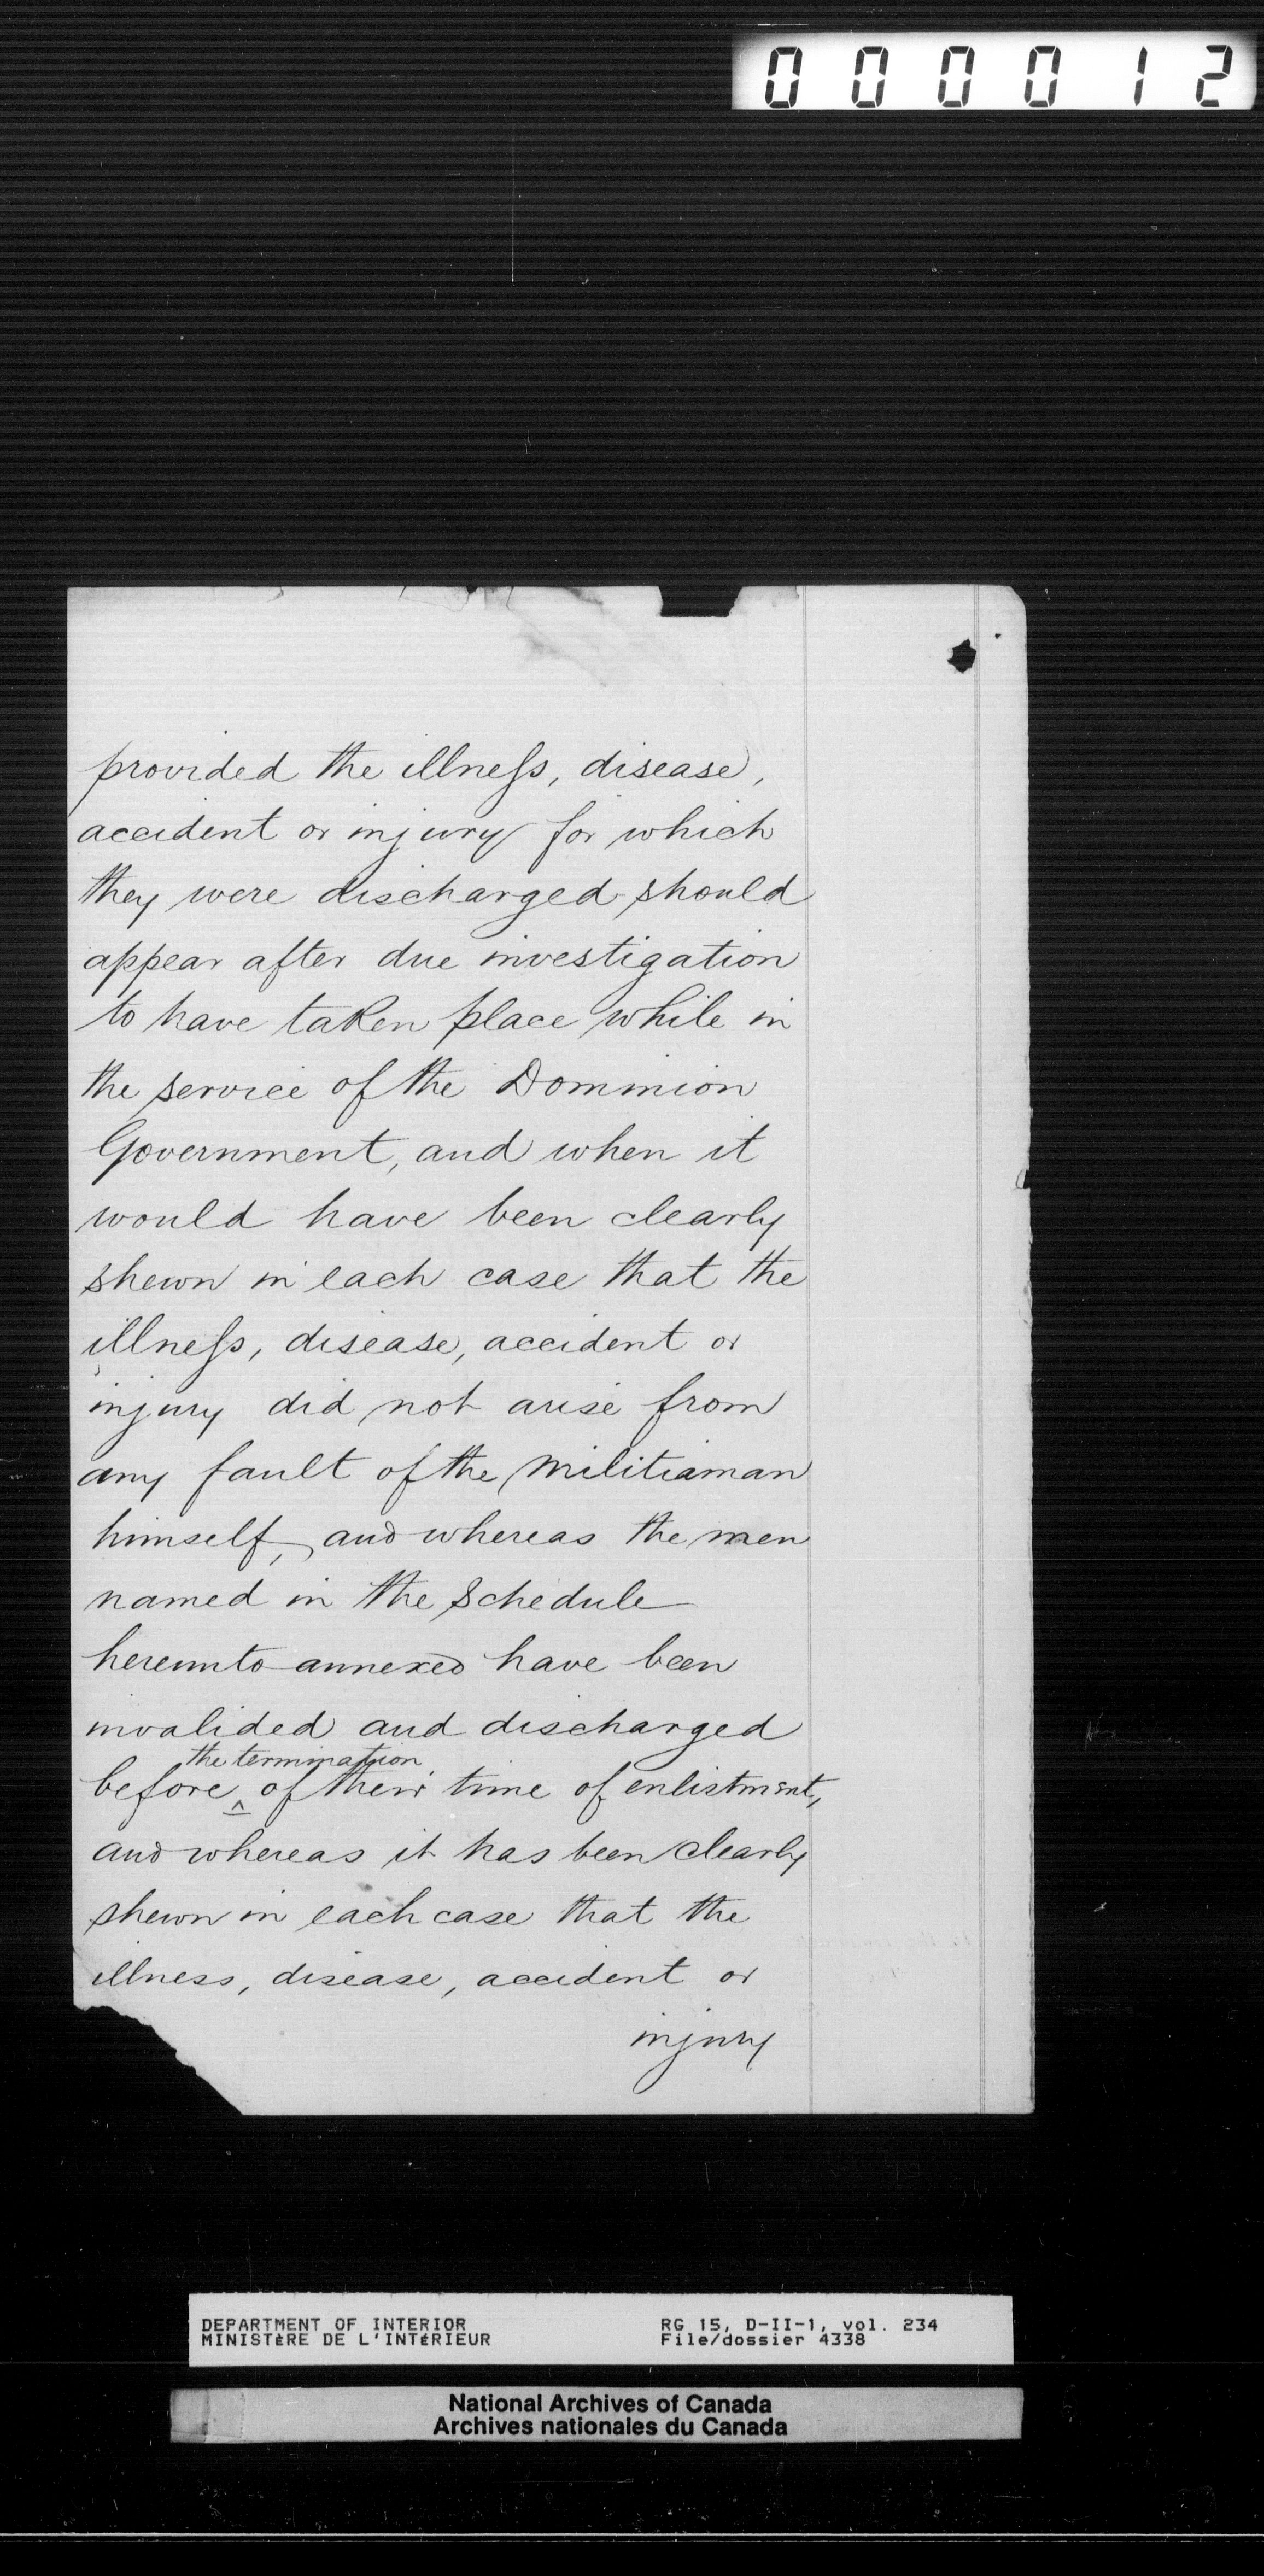 000012
provided the illness, disease,
accident or injury for which
they were discharged should
appear after due investigation
to have taken place while in
the service of the Dominion
Government, and when it
would have been clearly
shewn in each case that the
illness, disease, accident or
injury did not arise from
any fault of the Militiaman
himself, and whereas the men
named in the Schedule
hereunto annexed have been
invalided and discharged
the termination
before ^ of their time of enlistment,
and whereas it has been clearly
shewn in each case that the
illness, disease, accident or
injury
DEPARTMENT OF INTERIOR RG 15, D-II-1, vol. 234
MINISTÈRE DE L'INTÉRIEUR File/dossier 4338
National Archives of Canada
Archives nationales du Canada